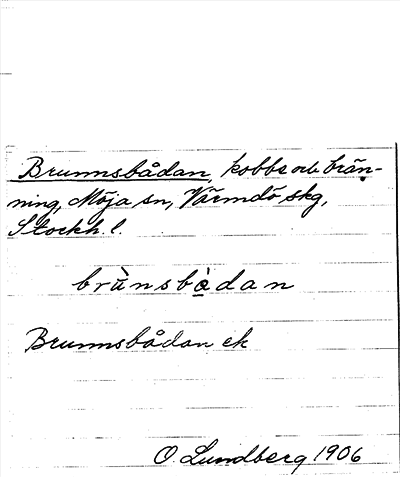 Brunnsbådan, kobbe och brän-
ning, Möja sn, Värmdö skg,
Stockh. l.
brùnsbòdan
Brunnsbådan ek
O. Lundberg 1906